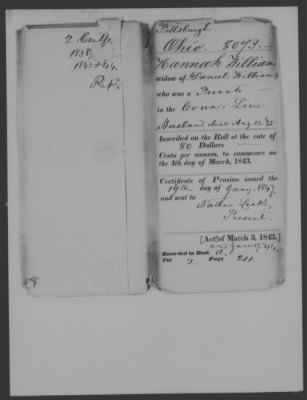 2 Certfs.
1838,
1843 & 44.
Rep.
Pittsburgh.
Ohio 8073.
Hannah William
widow of Daniel William
who was a Private
in the Conn. Line.
Husband died Aug 12
Inscribed on the Roll at the rate of
80 Dollars
Cents per annum, to commence on
the 4th day of March, 1843.
Certificate of Pension issued the
19th day of Jany. 1847
and sent to
Nathan
Present.
[Act of March 3, 1843.]
Recorded in Book A.
Vol. 2. Page 211